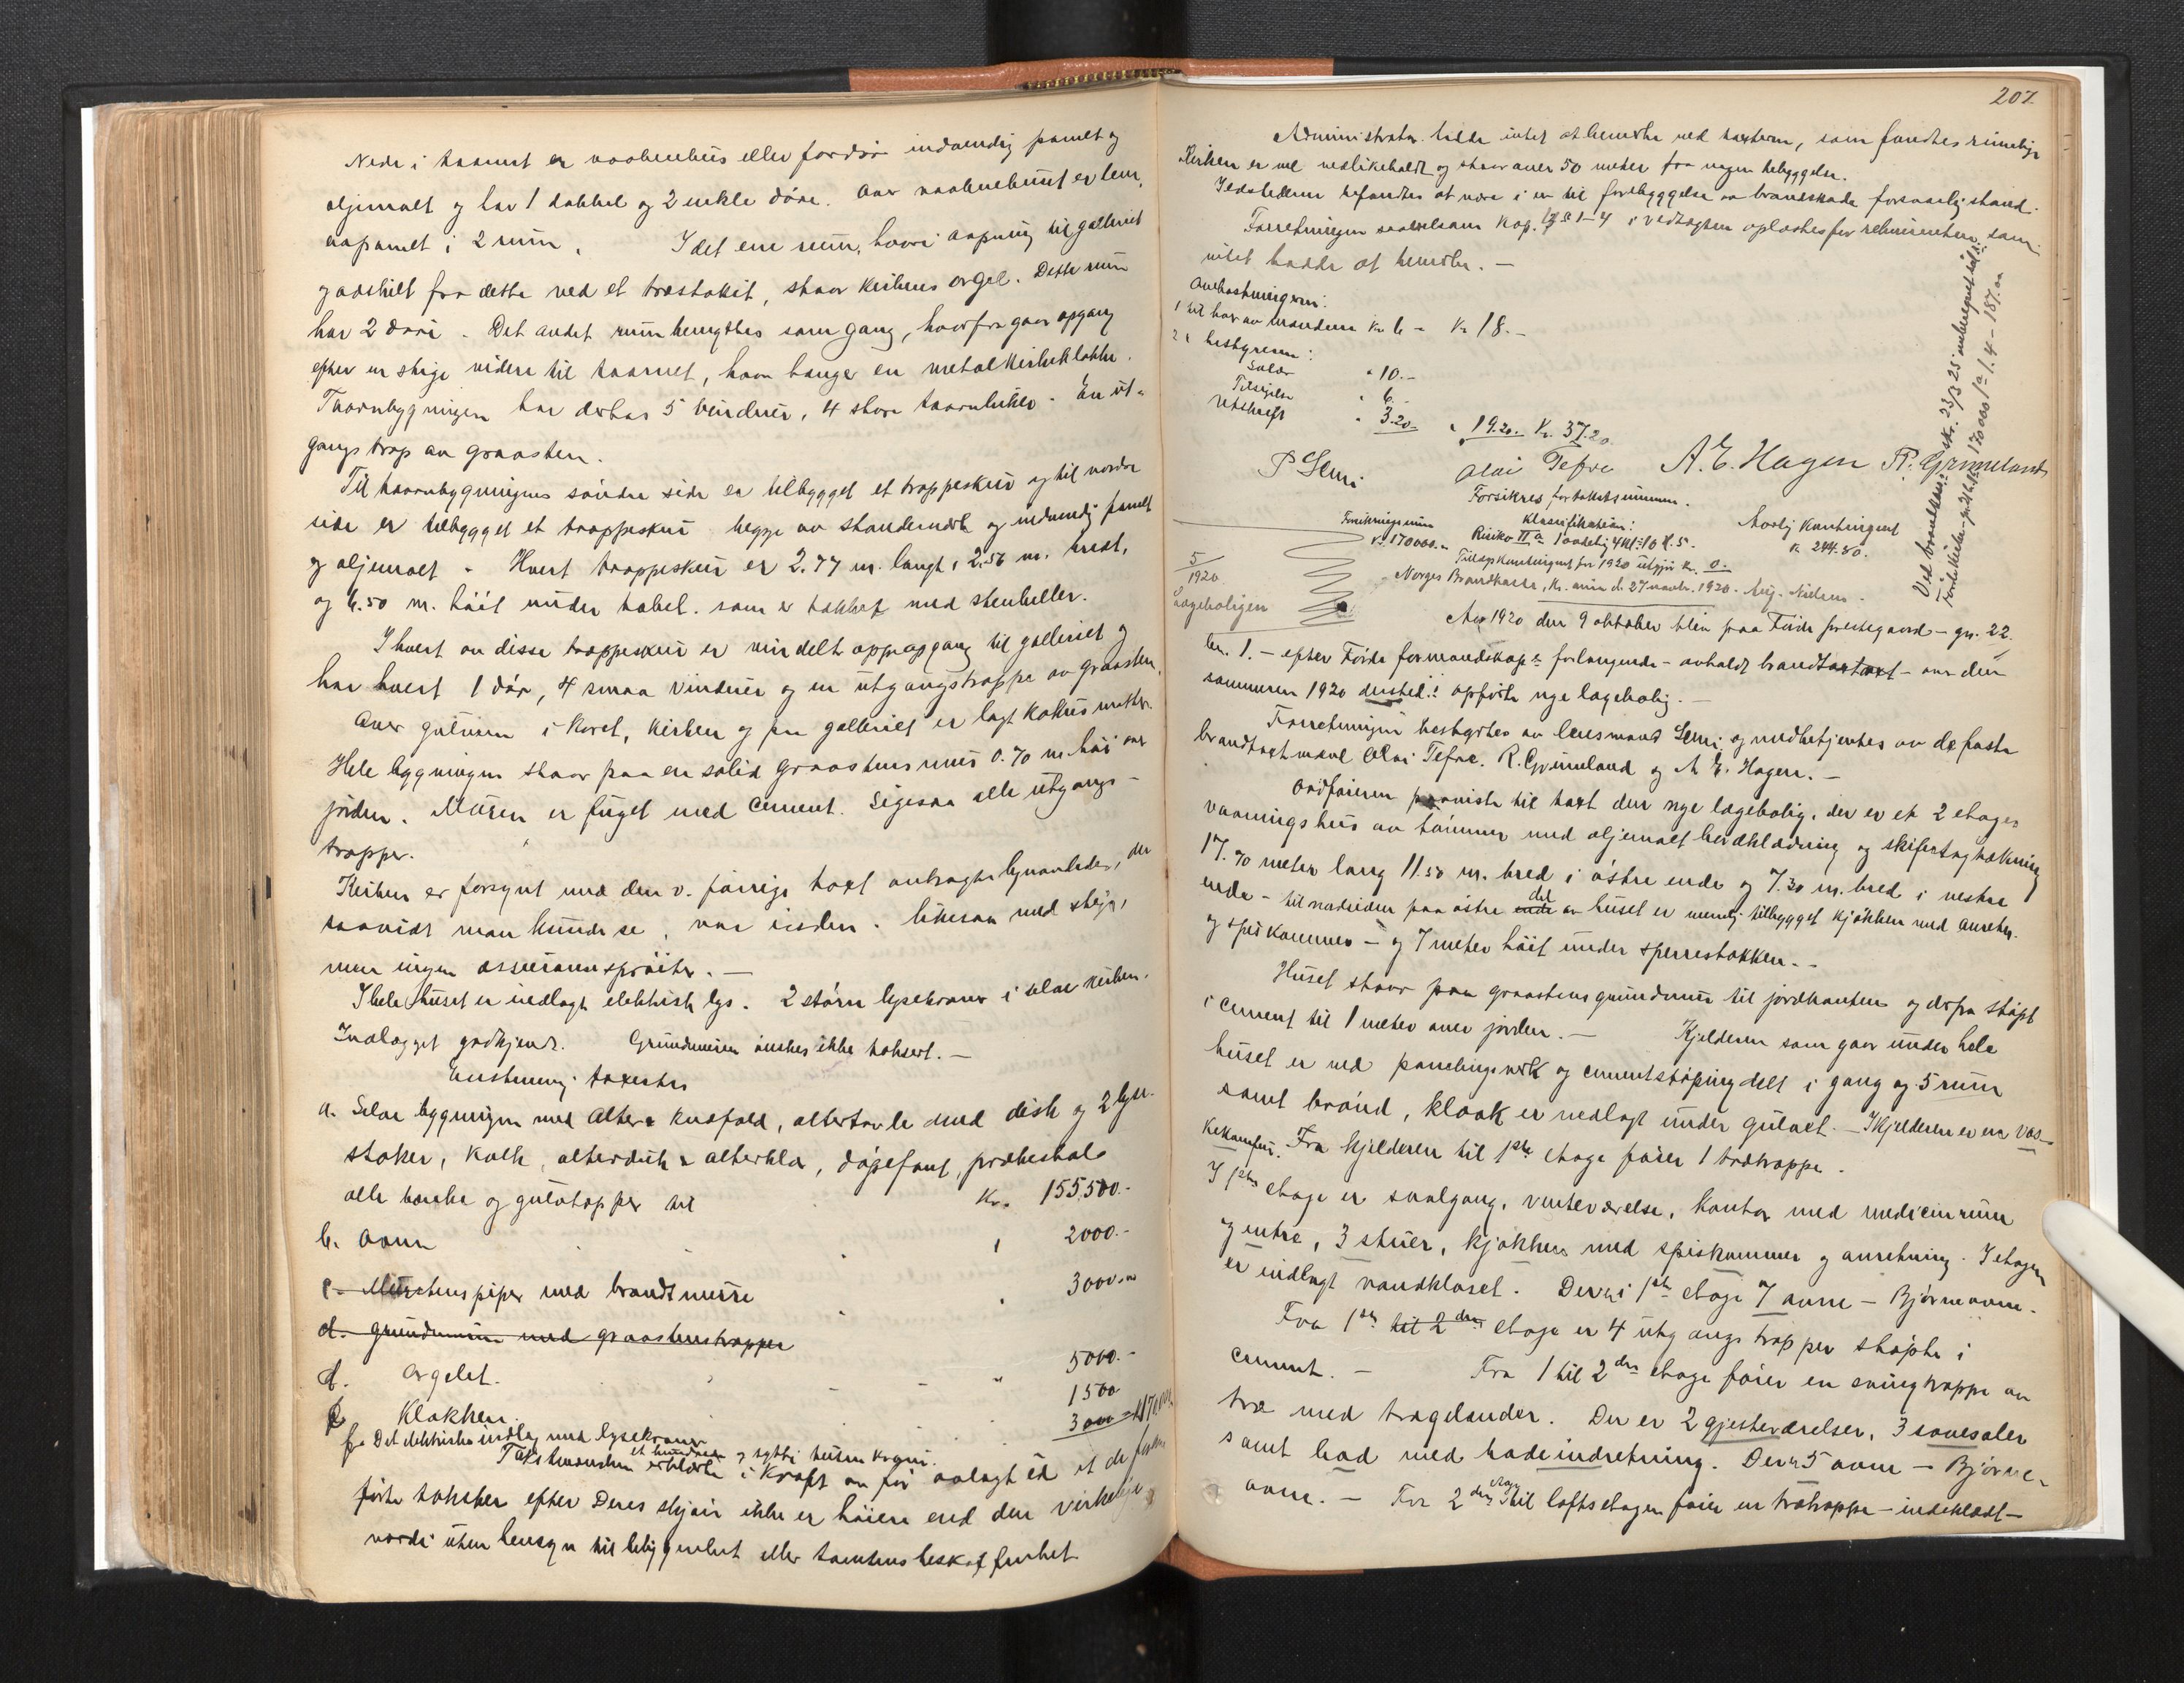 Nede i taarnet er vaabenhus eller fordør indvendig panelt og
oljemalt og har 1 dobbel og 2 enkle døre. Over vaabenhuset er lem,
uopanelt i 2 rum. I det ene rum, hvori aapning til galleriet
og adskilt fra dette ved et træstakit, staar kirkens orgel. Dette rum
har 2 døre. Det andet rum benyttes som gang, hvorfra gaar opgang
efter en stige videre til taarnet, hvor hænger en metalkirkeklokke.
Taarnbygningen har desuten 5 vinduer, 4 store taarnluker. En ut-
gangs trap av graasten.
Til taarnbygningens søndre side er tilbygget et trappeskur og til nordre
side er tilbygget et trappeskur begge av standerverk og indvendig panelt
og oljemalt. Hvert trappeskur er 2.77 m. langt, 2.56 m. bredt,
og 6.50 m. høit under tabel. som er tækket med stenheller.
I hvert av disse trappeskur er vindelt oppgang til galleriet og
har hvert 1 dør, 4 smaa vinduer og en utgangstrappe av graasten.
Over gulvene i koret, kirken og paa galleriet er lagt kokusmatter.
Hele bygningen staar paa en solid graastensmur 0.70 m. høi over
jorden. Muren er fuget med cement. Ligesaa alle utgangs-
trapper.
Kirken er forsynt med den v. forrige taxt anbragte lynavleder, der
saavidt man kunde se, var iorden. Likesaa med stiger,
men ingen assuransesprøiter. —
I hele huset er indlagt elektrisk lys. 2 større lysekroner i selve kirken.
Indlægget godkjendt. Grundmuren ønskes ikke takseret. —
a. Selve bygningen med alter & knæfald, altertavle med disk og 2 lyse-
staker, kalk, alterduk & alterklæ, døpefont, prækestol
alle bænke og gulvtepper til Kr. 155,500.-
b. Ovne " 2000.-
c. Murstenspiper med brandmure " 3000.00
d. grundmuren med graastenstrapper
d. Orgelet. " 5000.-
e. Klokken. 1500
f. Det elektriske indlæg med lysekroner 3000 = 170,000
et hundrede og sytti tusen kroner.
Takstmændene erklærte i kraft av før avlagt ed at de
førte takster efter deres skjøn ikke er høiere end den virkelige
værdi uten hensyn til beliggenhet eller tomtens beskaffenhet
207.
Administrator hadde intet at bemerke ved taxterne, som fandtes rimelige
Kirken er vel vedlikeholdt og staar over 50 meter fra nogen bebyggelse.
Ildstederne befandtes at være i en til forebyggelse av brandskade forsvarlig stand.
Forretningen saavelsom kap. 12 § 1-4 i vedtægten oplæstes for rekvirenten, som
intet hadde at bemerke. —
Omkostningerne:
1 til hver av mændene kr 6 - Kr 18. -
2 " bestyreren:
Salær " 10.-
Tilsigelse " 6.
Utskrift " 3.20. " 19.20. Kr. 37.20.
P Lemi Olai Tefre A. E. Hagen R. Grimeland
Forsikres for takstsummen.
Forsikringssum Klassifikation: Aarlig kontingent
Kr 170000.- Risiko IIa Kr 244.50.
Tillægskontingent for 1920 utgjør kr. 0.-
Norges Brandkasse, d. 27 novbr. 1920. Aug. Nielsen.
5/1920
Lægeboligen
Aar 1920 den 9 oktober blev paa Førde prestegaard - gr. 22.
br. 1. - efter Førde formandskaps forlangende - avholdt brandtaxt - over den
sommeren 1920 dersteds opførte nye lægebolig. —
Forretningen bestyrtes av lensmand Lemi og medbetjentes av de faste
brandtaxtmænd Olai Tefre. R. Grimeland og A. E. Hagen. —
Ordføreren paaviste til taxt den nye lægebolig, der er et 2 etages
vaaningshus av tømmer med oljemalt bordklædning og skifertagtækning
17.70 meter lang 11.50 m. bred i østre ende og 7.30 m. bred i vestre
ende - til nordsiden paa østre ende del av huset er nemlig tilbygget kjøkken med anretn.
og spiskammer - og 7 meter høit under sperrestokken. -
Huset staar paa graastensgrundmur til jordkanten og derfra støpt
i cement til 1 meter over jorden. — Kjelderen som gaar under hele
huset er ved panelingsverk og cementstøping delt i gang og 5 rum
samt brønd, kloak er nedlagt under gulvet. — I kjelderen er en vas-
kekomfur. Fra kjelderen til 1ste etage fører 1 trætrappe.
I 1ste etage er svalgang, venteværelse, kontor med medicinrum
og entre, 3 stuer, kjøkken med spiskammer og anretning. I etagen
er indlagt vandkloset. Der er i 1ste etage 7 ovne - Bjørneovne.
Fra 1ste til 2den etage er 4 utgangstrapper støpte i
cement. — Fra 1 til 2den etage fører en svingtrappe av
træ med trægelænder. Der er 2 gjesteværelser, 3 sovesaler
samt bad med badeindretning. Der er 5 ovne - Bjørne-
ovne. — Fra 2den etage til loftsetagen fører en trætrappe - indeklædt -